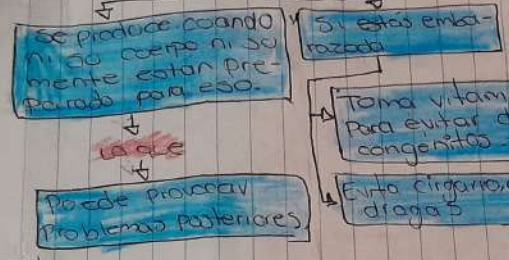 Se produce coando
ni su coerpo ni su
mente están pre-
parado para eso.
La que
Poede provocar
Problemas posteriores
Si estás emba-
razada
Toma vitam
Para evitar d
congénitos.
Evita cigarro,
drogas